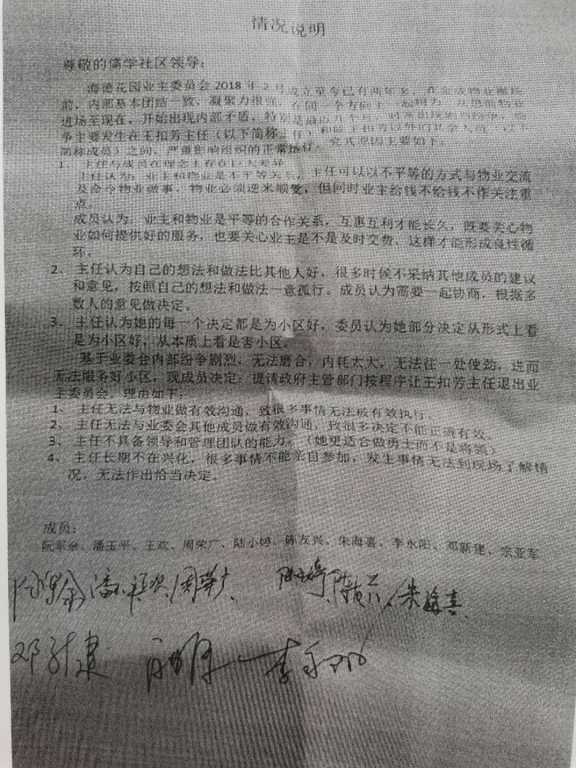 情况说明
尊敬的儒学社区领导：
海德花园业主委员会2018年2月成立至今已有两年多，在
前，内部基本团结一致，凝聚力很强，在同一个方向上一起
进场至现在，开始出现内部矛盾，特别是最近几个月，
争主要发生在王扣芳主任（以下简称主任）和除王扣芳以外的其余人员（以下
简称成员）之间，严重影响组织的正常运行。究其原因主要如下：
1、主任与成员在理念上存在巨大差异
主任认为：业主和物业是不平等关系，主任可以以不平等的方式与物业交流
及命令物业做事，物业必须逆来顺受，但同时业主给钱不给钱不作关注重
点。
成员认为：业主和物业是平等的合作关系，互惠互利才能长久，既要关心物
业如何提供好的服务，也要关心业主是不是及时交费，这样才能形成良性循
环。
2、主任认为自己的想法和做法比其他人好，很多时候不采纳其他成员的建议
和意见，按照自己的想法和做法一意孤行。成员认为需要一起协商，根据多
数人的意见做决定。
3、主任认为她的每一个决定都是为小区好，委员认为她部分决定从形式上看
是为小区好，从本质上看是害小区。
基于业委会内部纷争剧烈，无法磨合，内耗太大，无法往一处使劲，进而
无法服务好小区，现成员决定：提请政府主管部门按程序让王扣芳主任退出业
主委员会。理由如下：
1、主任无法与物业做有效沟通，致很多事情无法被有效执行。
2、主任无法与业委会其他成员做有效沟通，致很多决定不能正确有效。
3、主任不具备领导和管理团队的能力。（她更适合做勇士而不是将领）
4、主任长期不在兴化，很多事情不能亲自参加，发生事情无法到现场了解情
况，无法作出恰当决定。
成员：
阮军余、潘玉平、王欢、周荣广、陆小婷、陈友兴、朱海喜、李永阳、邓新建、宗亚军
周荣广 朱海喜
邓新建 李永阳